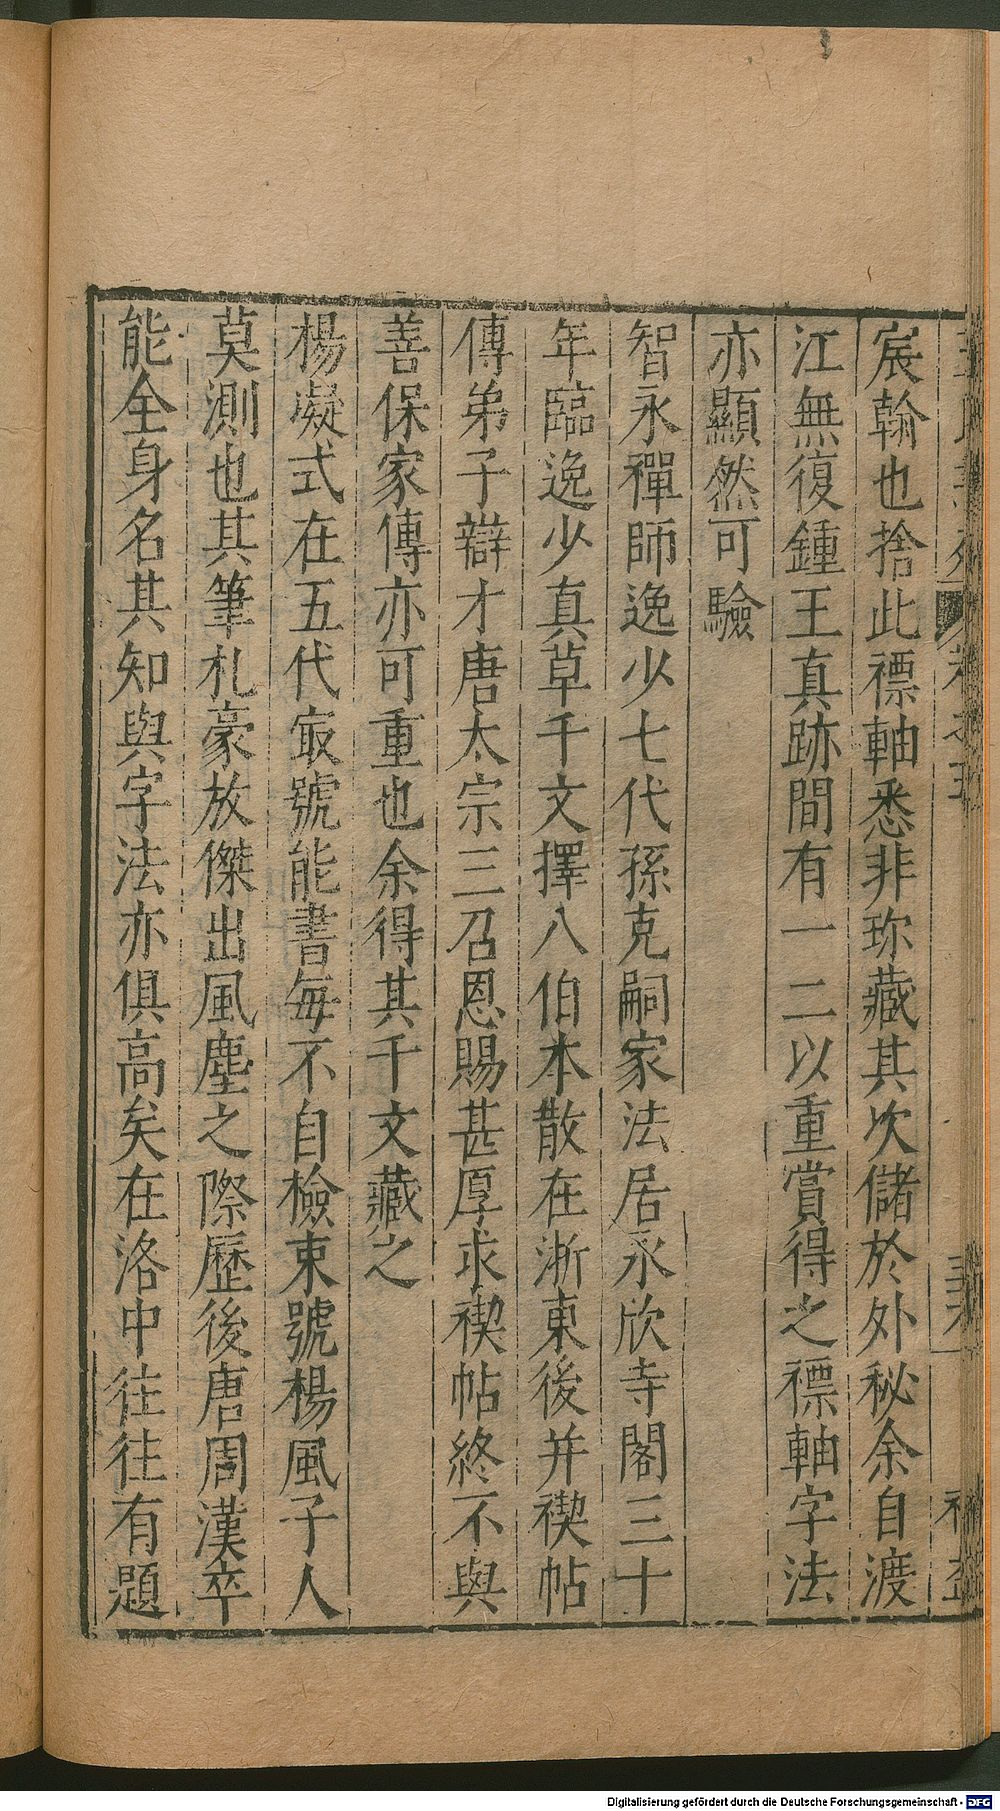 宸翰也捨此褾軸悉非珎藏其次儲於外秘余自渡
江無復鍾王真跡間有一二以重賞得之褾軸字法
亦顯然可驗
智永禪師逸少七代孫克嗣家法居永欣寺閣三十
年臨逸少真草千文擇八伯本散在浙東後并禊帖
傳弟子辯才唐太宗三召恩賜甚厚求禊帖終不與
善保家傳亦可重也余得其千文藏之
楊凝式在五代㝡號能書每不自檢束號楊風子人
莫測也其筆札豪放傑出風塵之際歷後唐周漢卒
能全身名其知與字法亦俱高矣在洛中往往有題
Digitalisierung gefördert durch die Deutsche Forschungsgemeinschaft - DFG